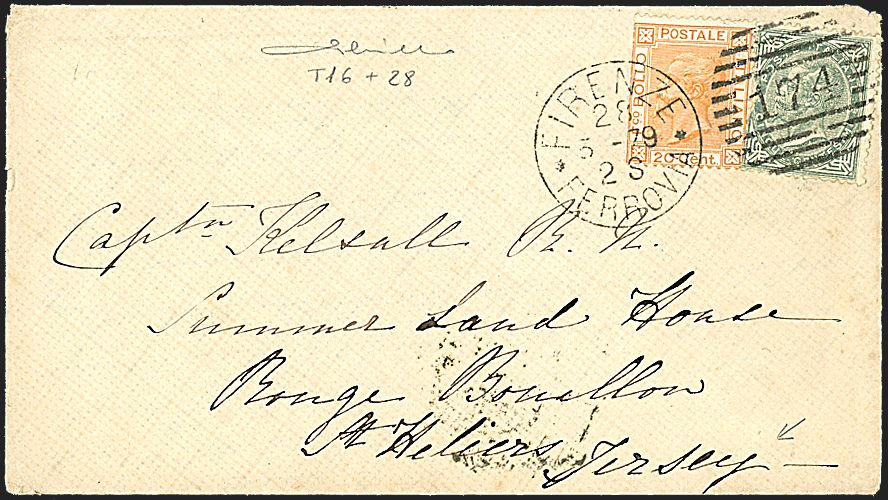 T16 + 28
POSTALE
BOLLO
20 Cent.
174
FIRENZE
28
5 - 79
2 S
* FERROVIA *
Captn Kelsall R. N.
Summer Land House
Rouge Bouillon
St Heliers Jersey